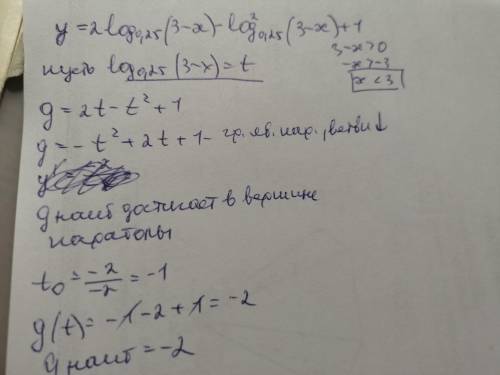 y = 2log₀,₂₅(3-x) - log²₀,₂₅(3-x) + 1
3-x>0
-x>-3
x<3
пусть log₀,₂₅(3-x) = t
y = 2t - t² + 1
y = -t² + 2t + 1 - гр. яв. пар., ветви ↓
y наиб достигает в вершине
параболы
t₀ = -2/-2 = -1
y(t) = -1 - 2 + 1 = -2
y наиб = -2